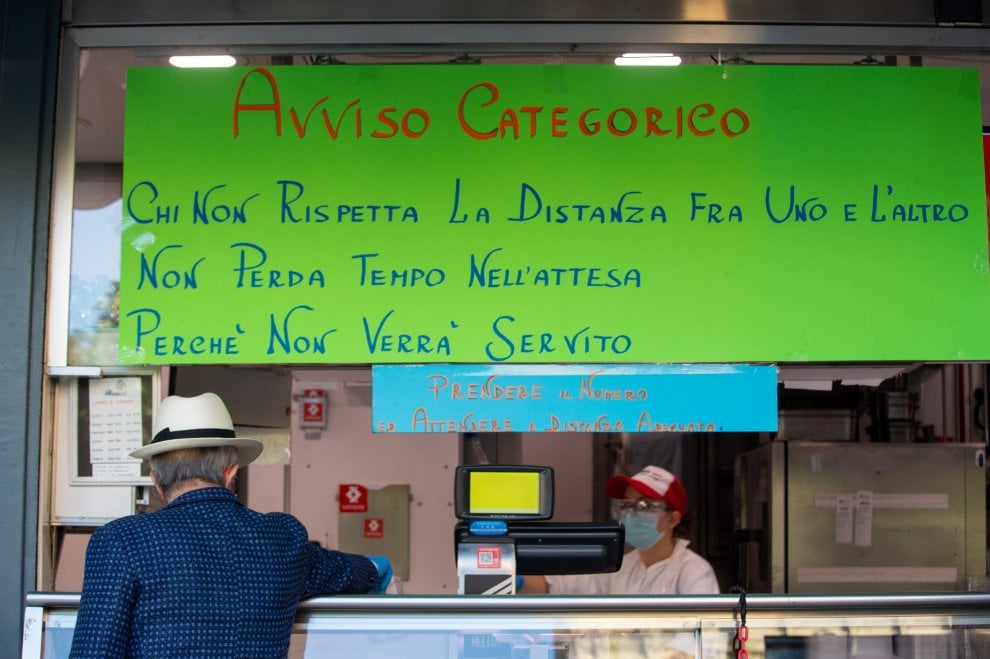 Avviso Categorico
Chi Non Rispetta La Distanza Fra Uno e L'altro
Non Perda Tempo Nell'attesa
Perchè Non Verrà Servito
Prendere il Numero
ed Attendere a Distanza Adeguata.